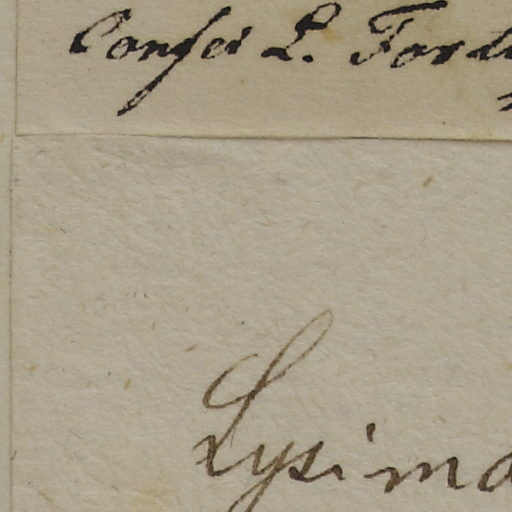 Confer L. Ford
Lysima